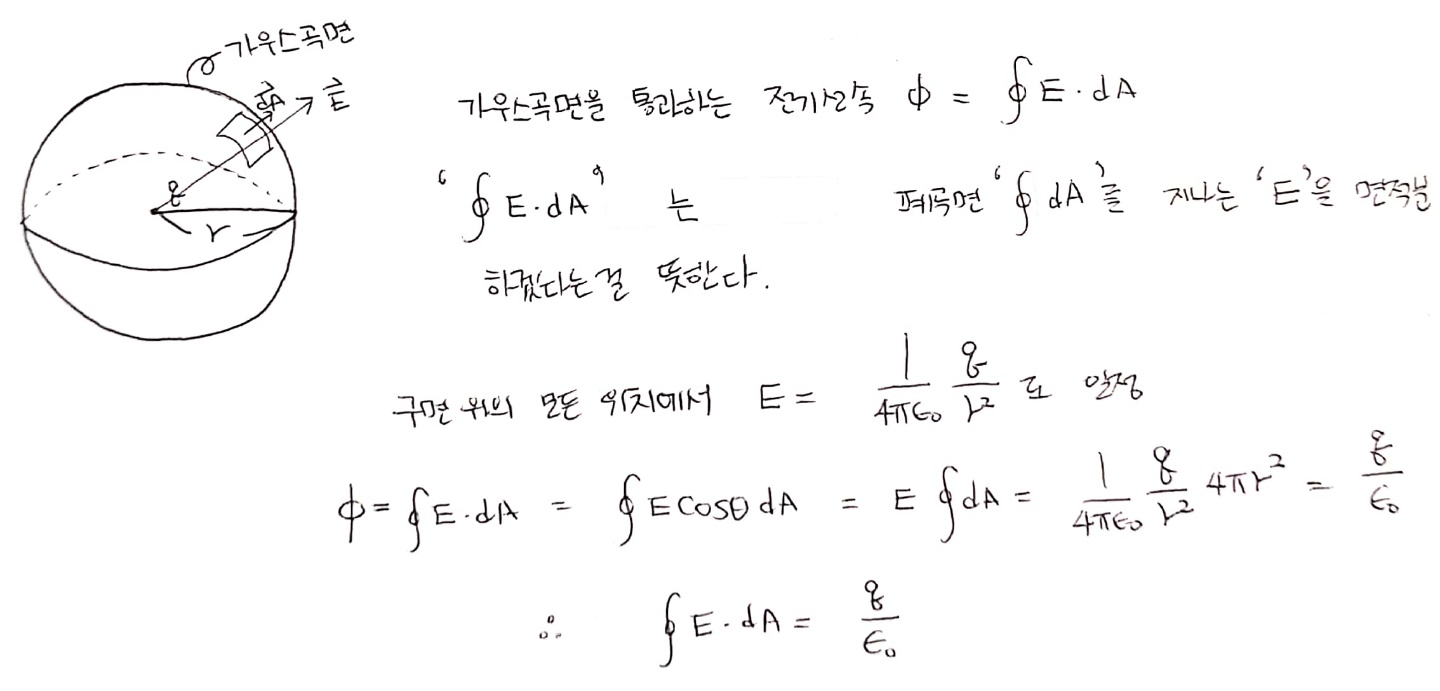 가우스곡면
dA E
q
r
가우스곡면을 통과하는 전기선속 ϕ = ∮E·dA
‘∮E·dA’ 는 폐곡면 ‘∮dA’를 지나는 ‘E’을 면적분
하겠다는걸 뜻한다.
구면 위의 모든 위치에서 E = 1/4πε₀ q/r² 로 일정
ϕ = ∮E·dA = ∮E cosθ dA = E ∮dA = 1/4πε₀ q/r² 4πr² = q/ε₀
∴ ∮E·dA = q/ε₀